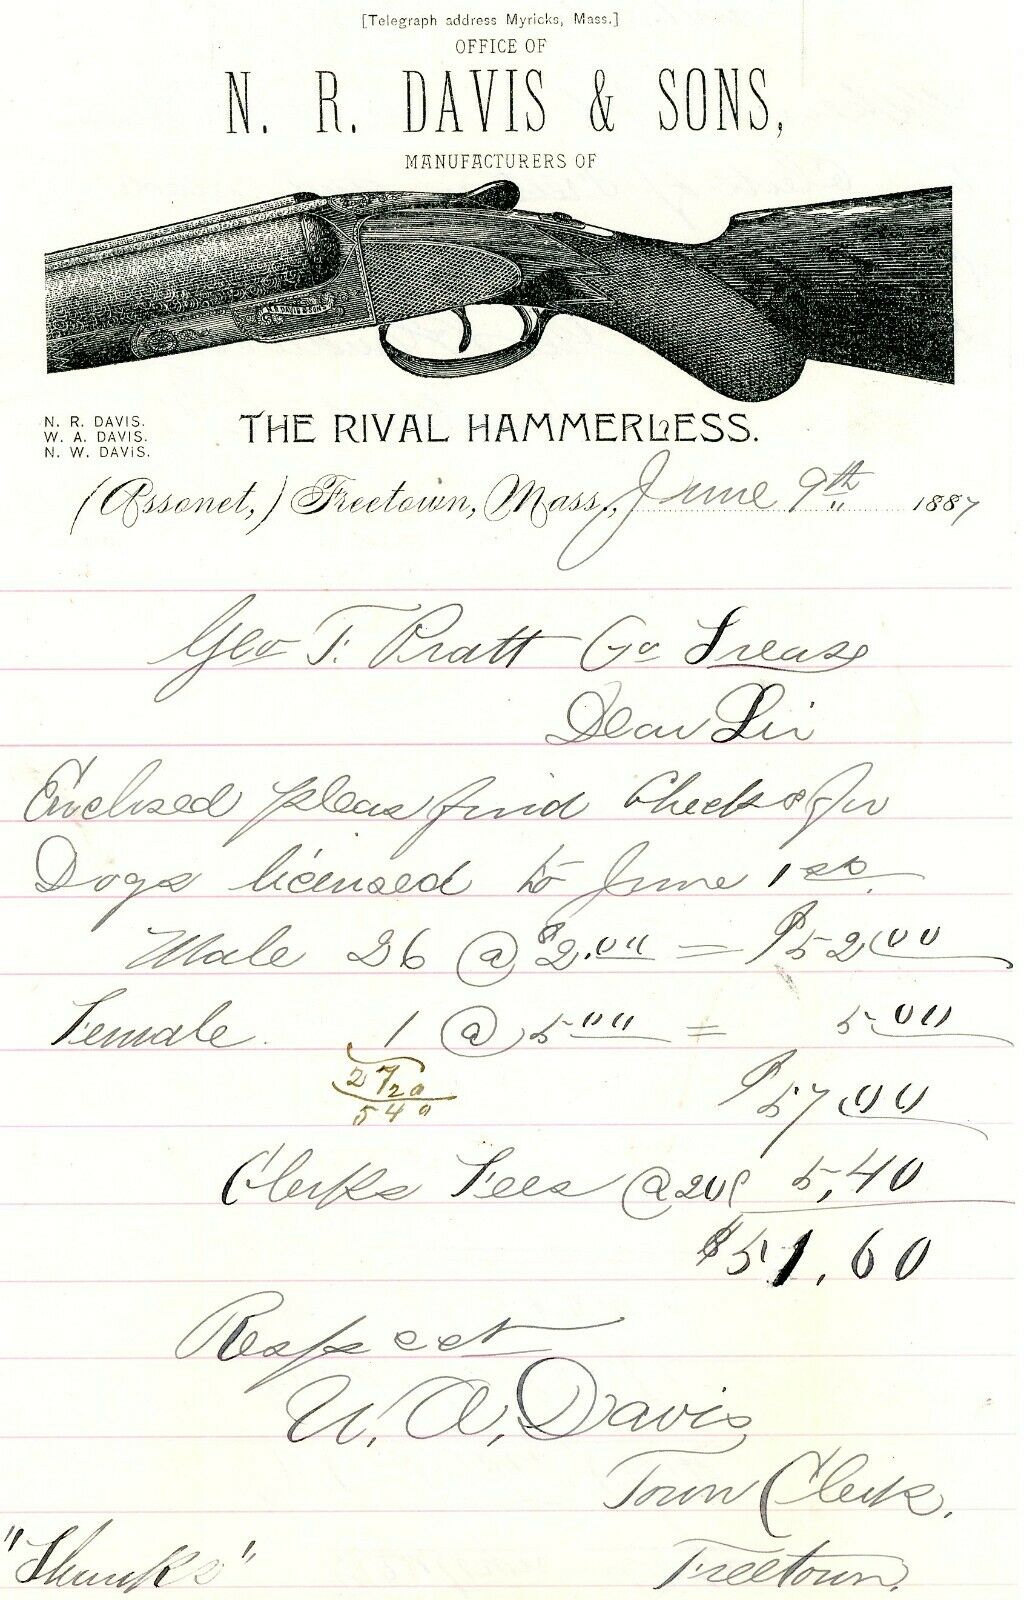 [Telegraph address Myricks, Mass.]
OFFICE OF
N. R. DAVIS & SONS,
MANUFACTURERS OF
N. R. DAVIS & SONS
N. R. DAVIS.
W. A. DAVIS.
N. W. DAVIS.
THE RIVAL HAMMERLESS.
(Assonet,) Freetown, Mass., June 9th 1887
Geo F. Pratt Co Treas
Dear Sir
Enclosed pleas find Check for
Dogs licensed to June 1st.
Male 26 @ $2.00 = $52.00
Female. 1 @ 5.00 = 5.00
27/20
540
$57.00
Clerks Fees @ 20¢ 5,40
$51.60
Respect
W. A. Davis
Town Clerk.
Freetown.
"Skunks"